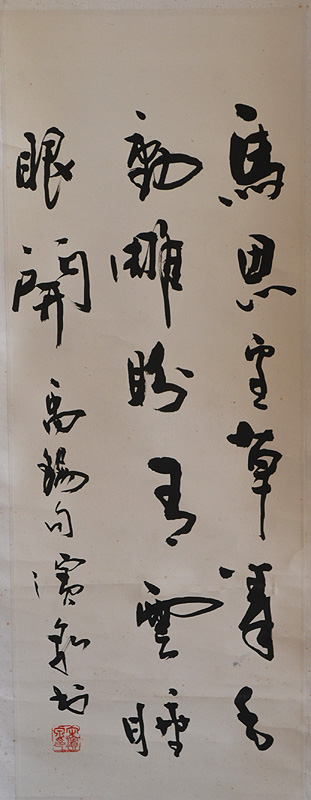 馬思邊草拳毛
動雕盼青雲睡
眼開 禹錫句 書